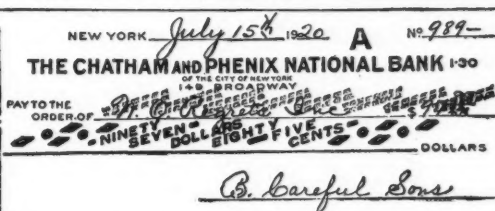 NEW YORK July 15th 1920 A No. 989-
THE CHATHAM AND PHENIX NATIONAL BANK 1-30
OF THE CITY OF NEW YORK
149 BROADWAY
PAY TO THE
ORDER OF Inc. $
NINETY SEVEN DOLLARS EIGHTY FIVE CENTS
DOLLARS
B. Careful Sons